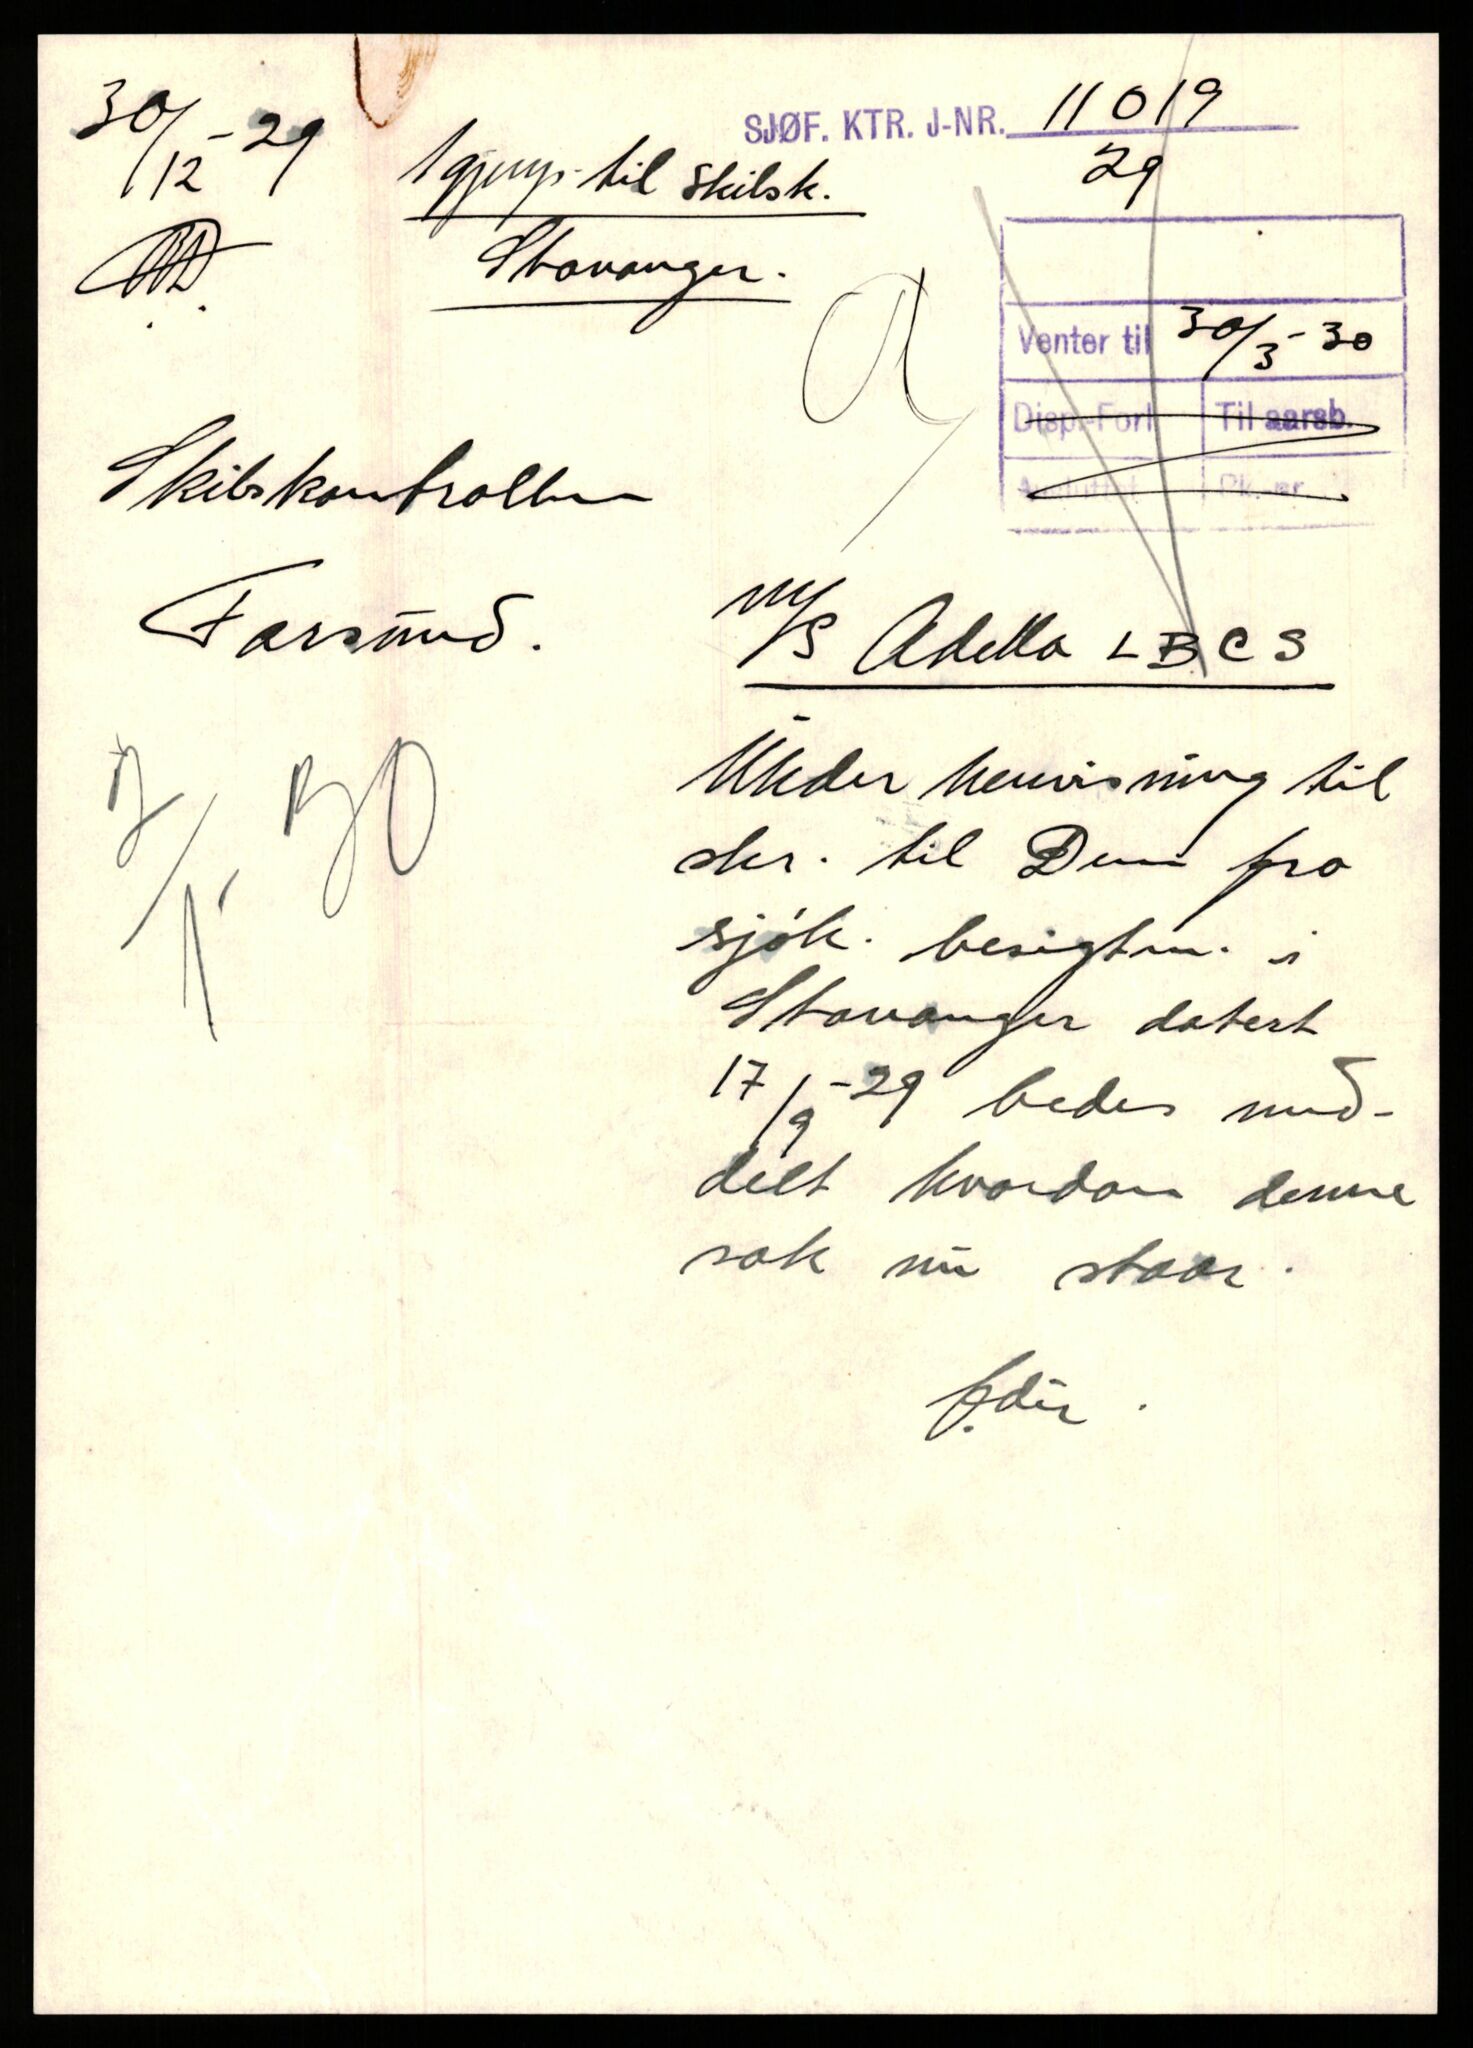 30/12-29
SJØF. KTR. J-NR. 11019
29
1 gjenp. til Skibsk.
Stavanger.
Venter til 30/3-30
Disp.-Forl. Til aarsb.
Avsluttet Pk. nr.
A
Skibskontrollen
Farsund.
M/S Adella LBCS
Under henvisning til
skr. til Dem fra
sjøk. besigtm. i
Stavanger datert
17/9-29 bedes med-
delt hvordan denne
sak nu staar.
f. dir.